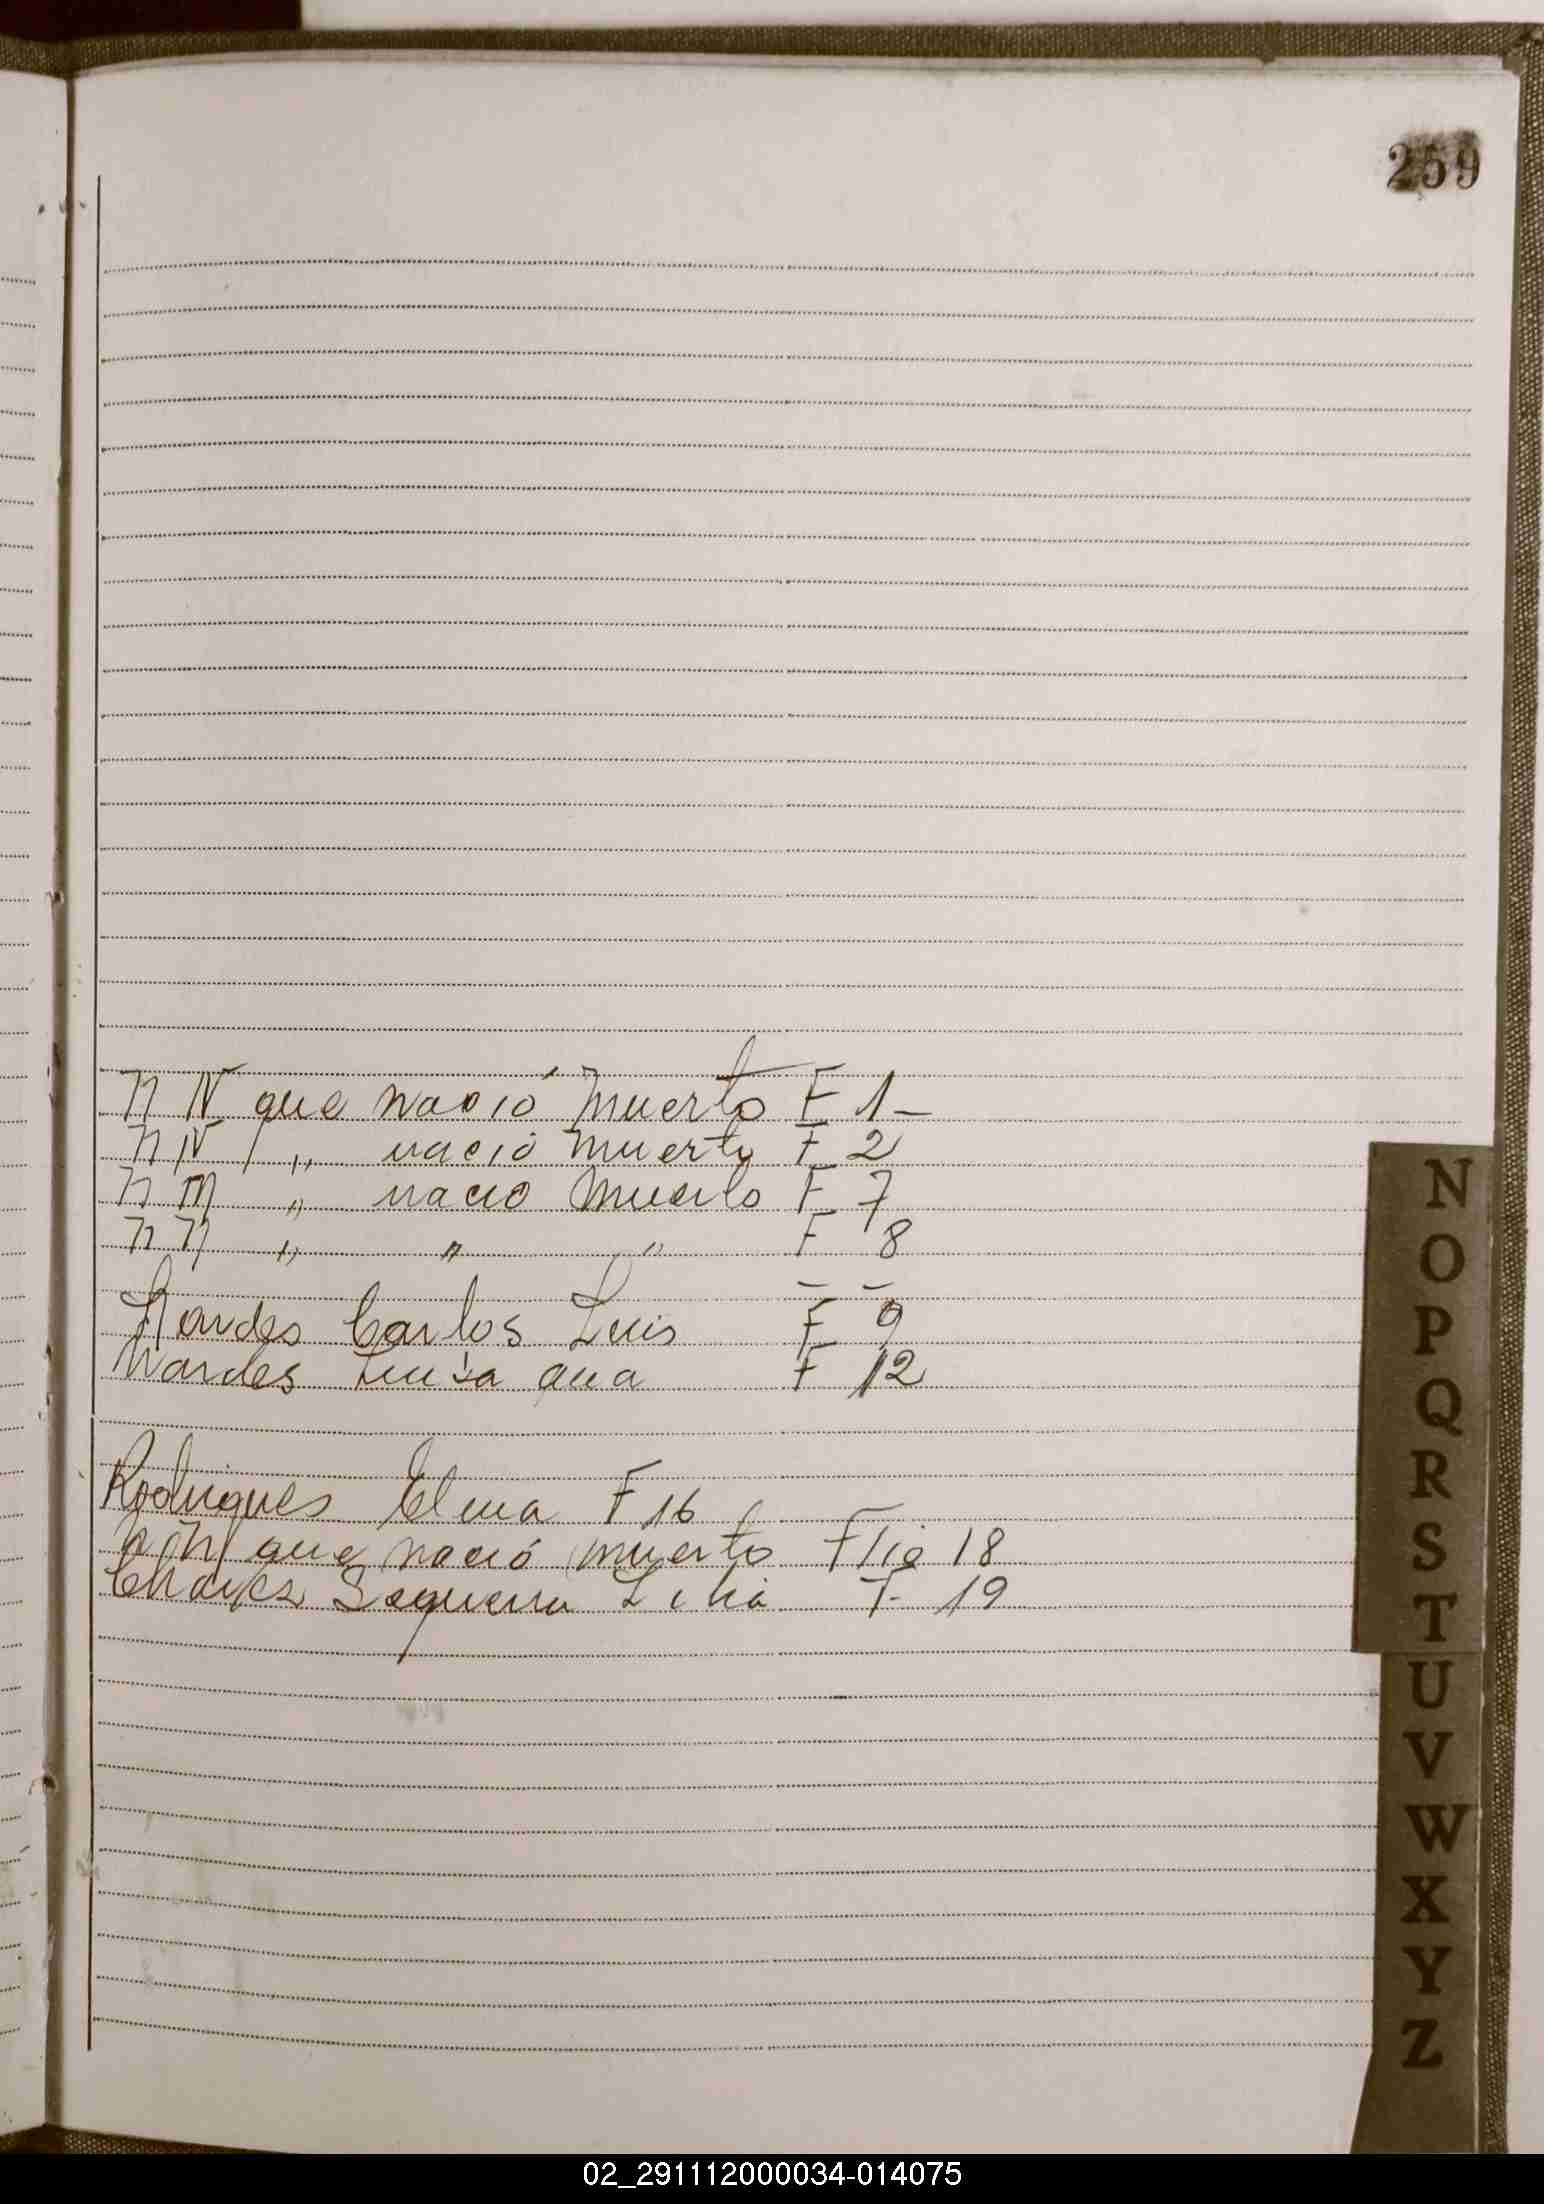 259
N N que nació muerto F 1-
N N " nació muerto F 2
N N " nacio muerto F 7
N N " " " F 8
Carlos Luis F 9
Nardes Luisa ana F 12
Rodrigues Elena F 16
N N que nació muerto Flio 18
Sequeira F- 19
N
O
P
Q
R
S
T
U
V
W
X
Y
Z
02_291112000034-014075